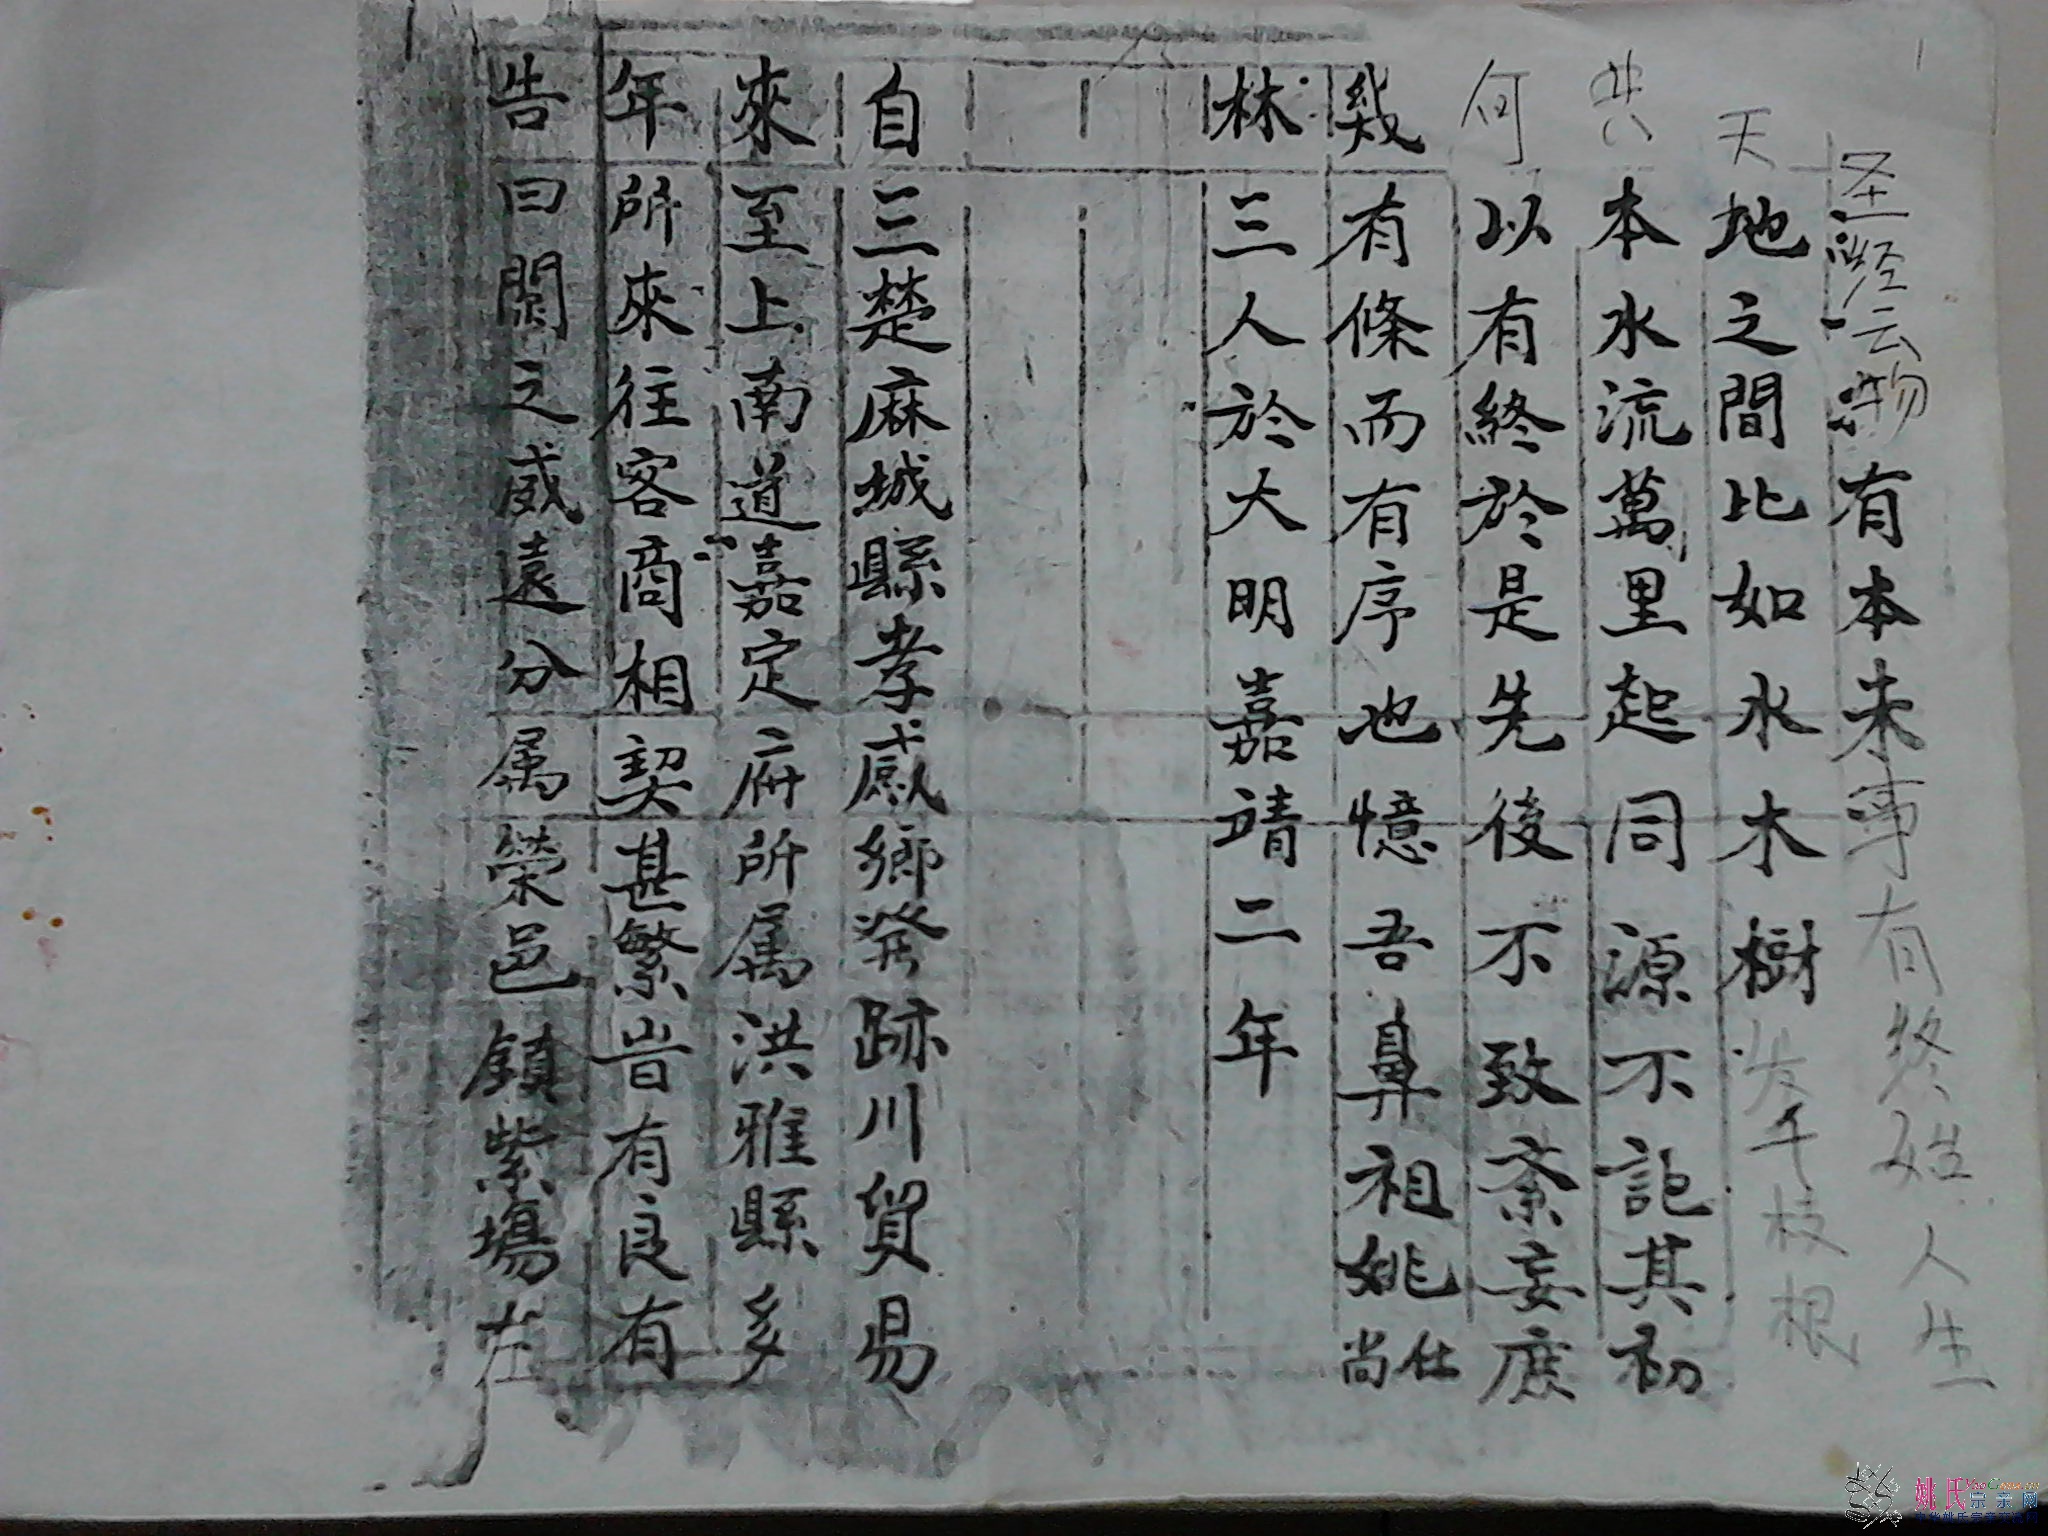 圣经云物有本末事有终始人生
天地之間比如水木樹发千枝根
共本水流萬里起同源不記其初
何以有終於是先後不致紊妄庶
幾有條而有序也憶吾鼻祖姚仕尚
林三人於大明嘉靖二年
自三楚麻城縣孝感鄉発跡川貿易
來至上南道嘉定府所属洪雅縣多
年所來往客商相契甚繁皆有良有
告曰閬之威遠分属榮邑鎮紫場左
姚氏宗亲网